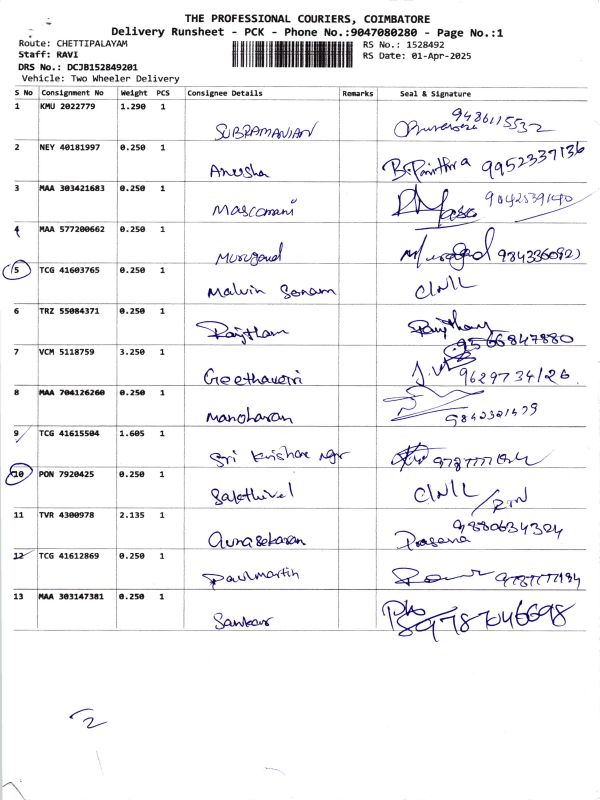 THE PROFESSIONAL COURIERS, COIMBATORE
Delivery Runsheet - PCK - Phone No.:9047080280 - Page No.:1
Route: CHETTIPALAYAM
RS No.: 1528492
Staff: RAVI
RS Date: 01-Apr-2025
DRS No.: DCJB152849201
Vehicle: Two Wheeler Delivery
S No Consignment No Weight PCS Consignee Details Remarks Seal & Signature
1 KMU 2022779 1.290 1
SUBRAMANIAN 9486115532
2 NEY 40181997 0.250 1
Anusha B.Pavithra 9952337136
3 MAA 303421683 0.250 1
Mascomani
4 MAA 577200662 0.250 1
Murugaud
5 TCG 41603765 0.250 1
Malvin Sonam C/N/L
6 TRZ 55084371 0.250 1
Rajtham 9566847880
7 VCM 5118759 3.250 1
9629734126
8 MAA 704126260 0.250 1
Manoharan
9 TCG 41615504 1.605 1
Sri Krishna Ngr
10 PON 7920425 0.250 1
Sakthivel C/N/L
11 TVR 4300978 2.135 1
Gunasekaran 9880634324
12 TCG 41612869 0.250 1
Paulmartin
13 MAA 303147381 0.250 1
Sankar 9787046698
2